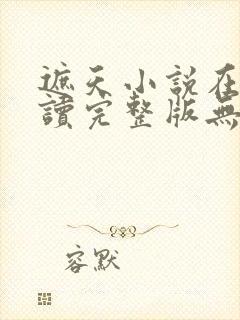 遮天小說在
讀完整版無
容默